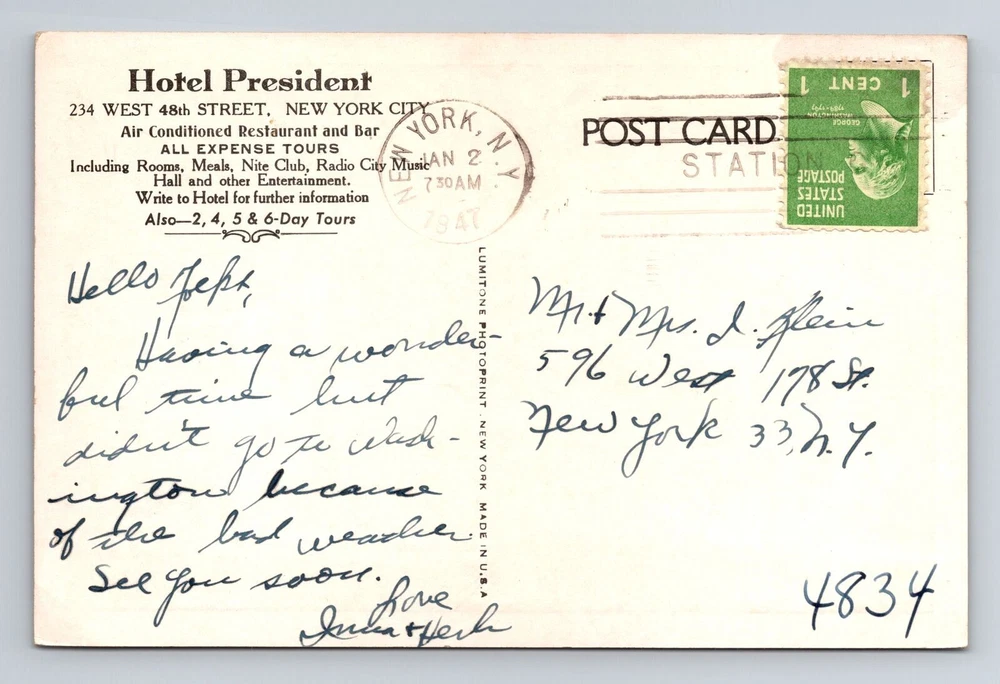 Hotel President
234 WEST 48th STREET, NEW YORK CITY
Air Conditioned Restaurant and Bar
ALL EXPENSE TOURS
Including Rooms, Meals, Nite Club, Radio City Music
Hall and other Entertainment.
Write to Hotel for further information
Also—2, 4, 5 & 6-Day Tours
NEW YORK, N.Y.
JAN 2
7 30 AM
1947
POST CARD
STATION
1 CENT 1
GEORGE
WASHINGTON
UNITED
STATES
POSTAGE
Hello
Having a wonder-
ful time but
didn't go to Wash-
ington because
of the bad weather.
See you soon.
Love
Irma + Herb
LUMITONE PHOTOPRINT · NEW YORK MADE IN U.S.A
Mr. + Mrs. I. Klein
596 West 178 St.
New York 33, N.Y.
4834